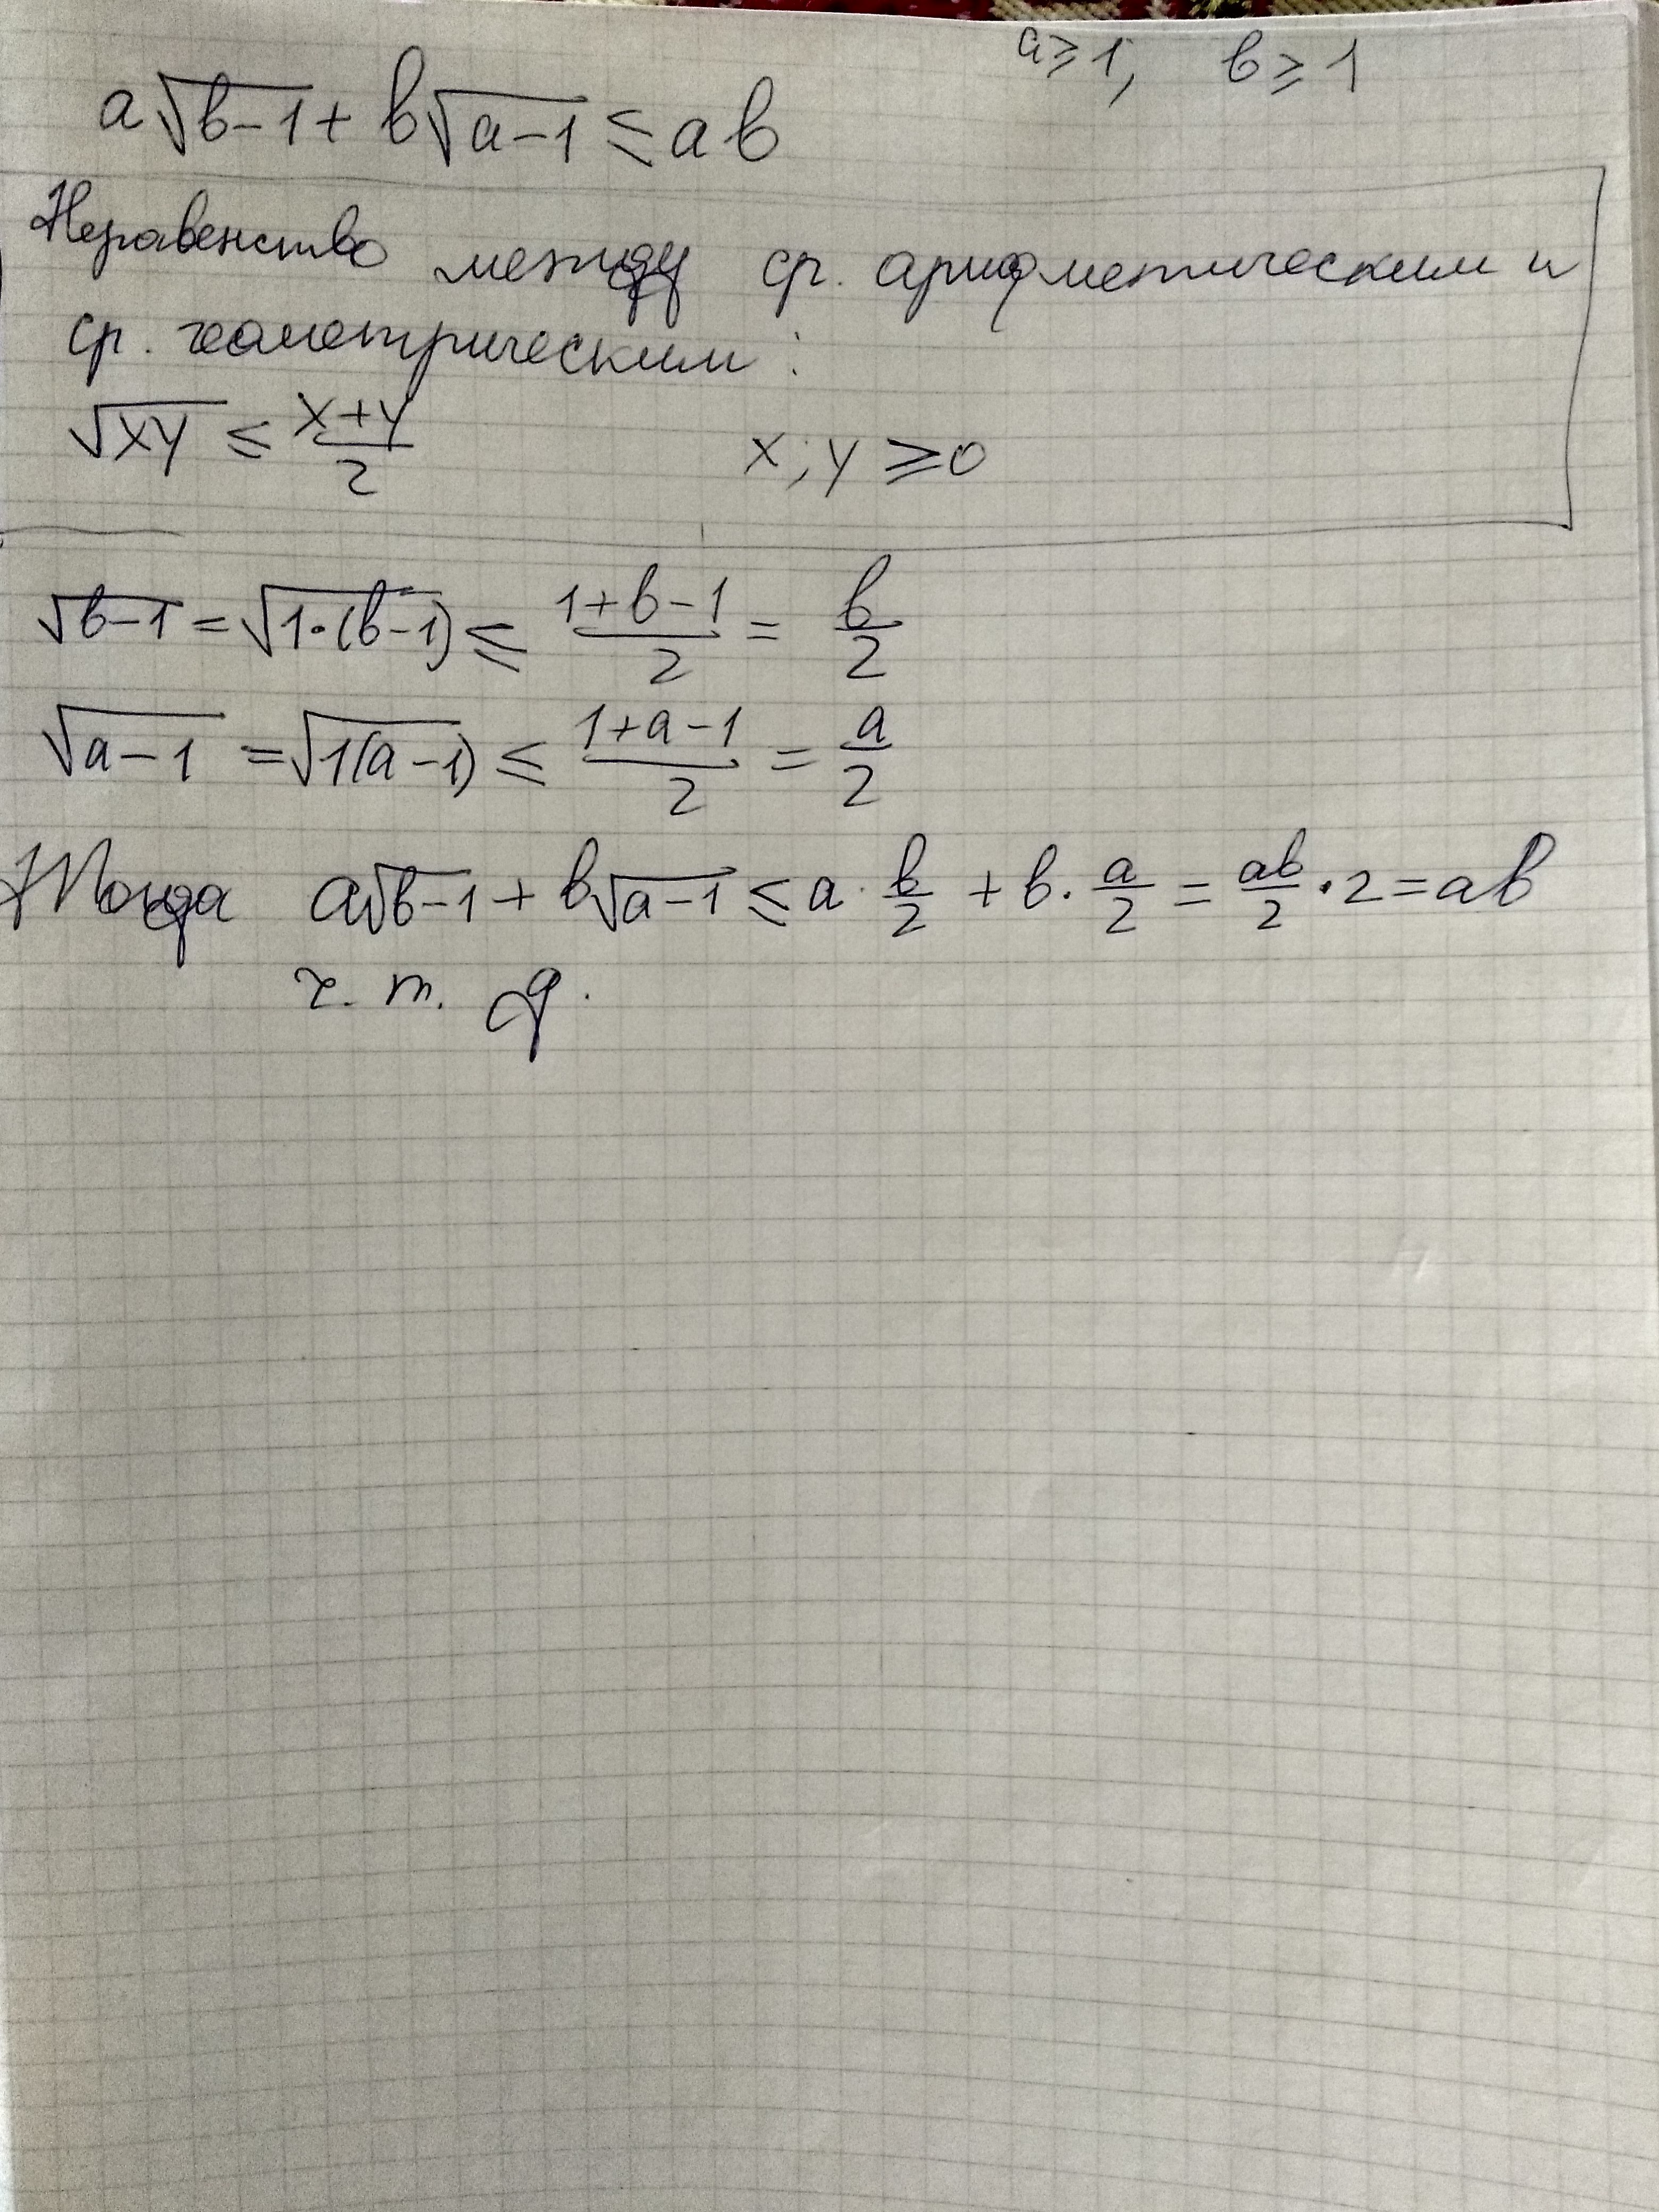 a ≥ 1, b ≥ 1
a√(b-1) + b√(a-1) ≤ ab
Неравенство между ср. арифметическим и
ср. геометрическим :
√(xy) ≤ (x+y)/2 x; y ≥ 0
√(b-1) = √(1·(b-1)) ≤ (1+b-1)/2 = b/2
√(a-1) = √(1(a-1)) ≤ (1+a-1)/2 = a/2
Тогда a√(b-1) + b√(a-1) ≤ a · b/2 + b · a/2 = ab/2 · 2 = ab
ч. т. д.